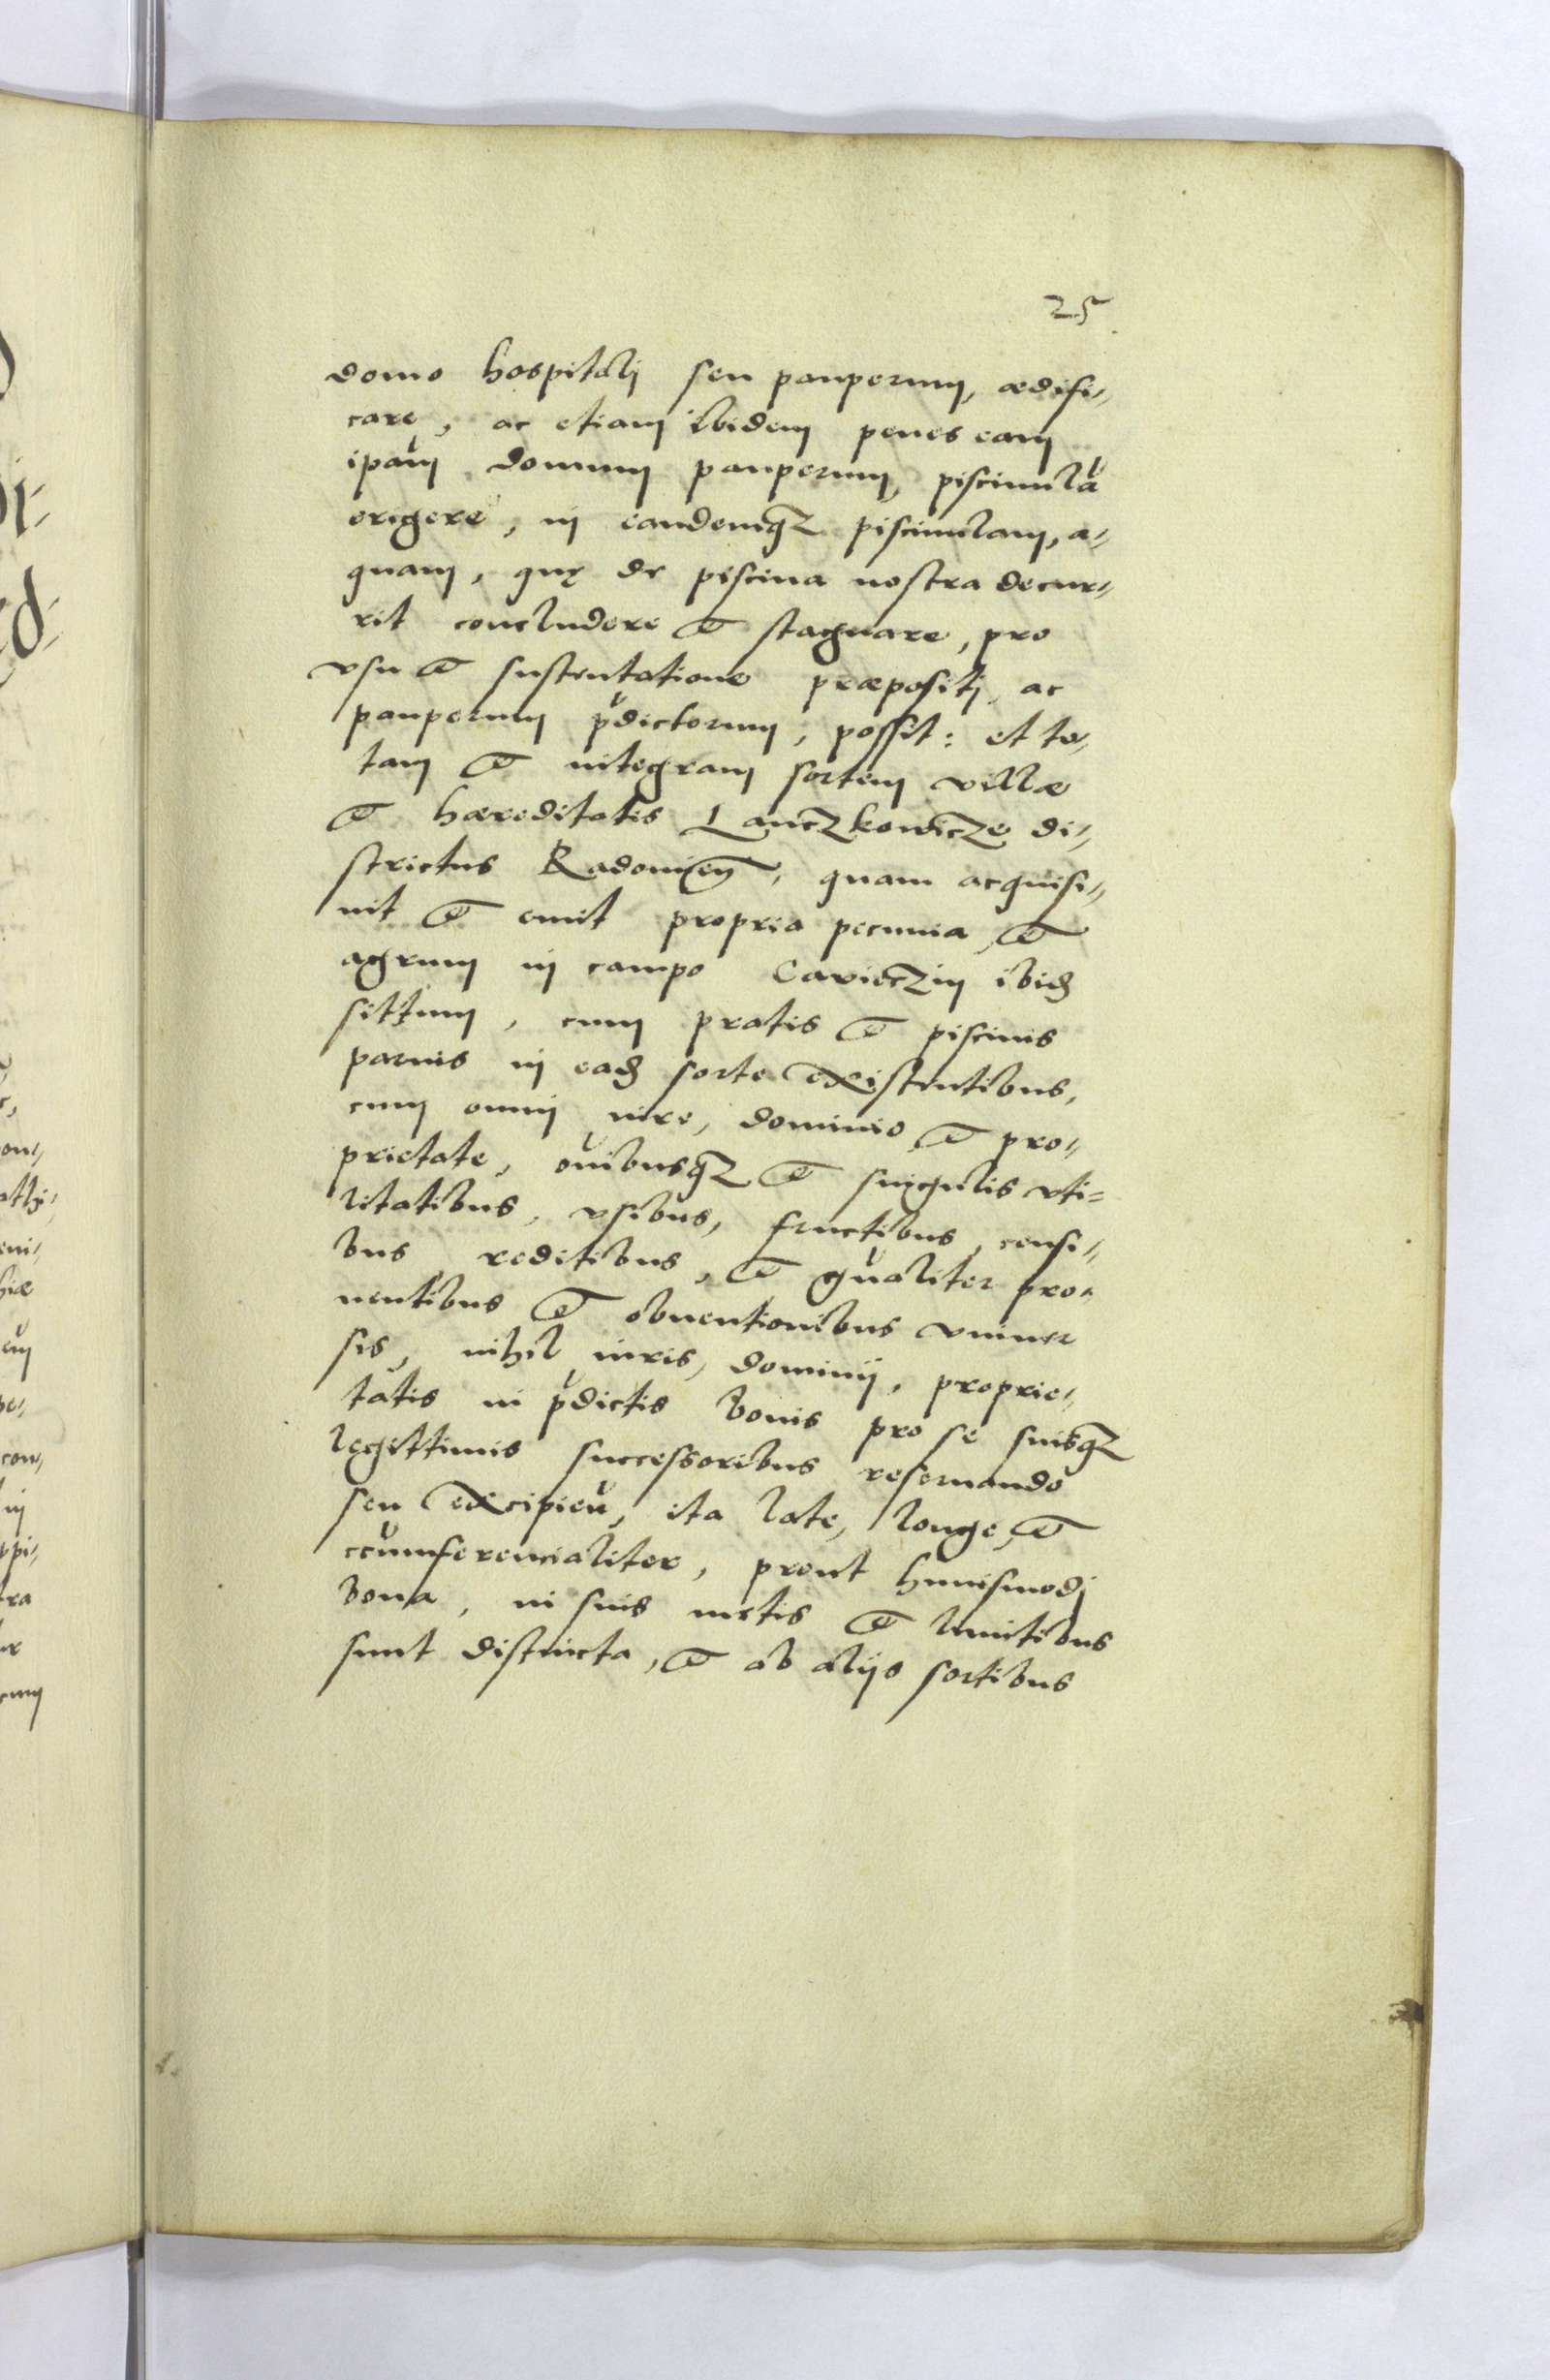 25
domo hospitalj seu pauperum, ædifi-
care, ac etiam ibidem penes eam
ip̃am domum pauperum, piscinulã
erigere, in eandemqꝫ piscinulam, a-
quam, quę de piscina nostra decur-
rit concludere et stagnare, pro
vsu et sustentatione præpositj ac
pauperum p̃dictorum, possit: et to-
tam et integram sortem villæ
et hæreditatis Lanczkowicze di-
strictus Radomien̄, quam acquisi-
uit et emit propria pecunia et
agrum in campo Cavieczin ibid̃
sittum, cum pratis et piscinis
paruis in ead̃ sorte existentibus,
cum omni iure, dominio et pro-
prietate, om̃ibusqꝫ et singulis vti-
litatibus, vsibus, fructibus, censi-
bus reditibus, et q̃ualiter pro-
uentibus et obuentionibus vniuer
sis, nihil iuris, dominij, proprie-
tatis in p̃dictis bonis pro se suisqꝫ
legittimis successoribus reseruando
seu excipien̄, ita late, longe, et
cc̃umferencialiter, prout huiusmodj
bona, in suis metis et limitibus
sunt distincta, et ab alijs sortibus